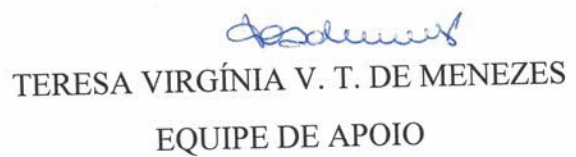 TERESA VIRGÍNIA V. T. DE MENEZES
EQUIPE DE APOIO